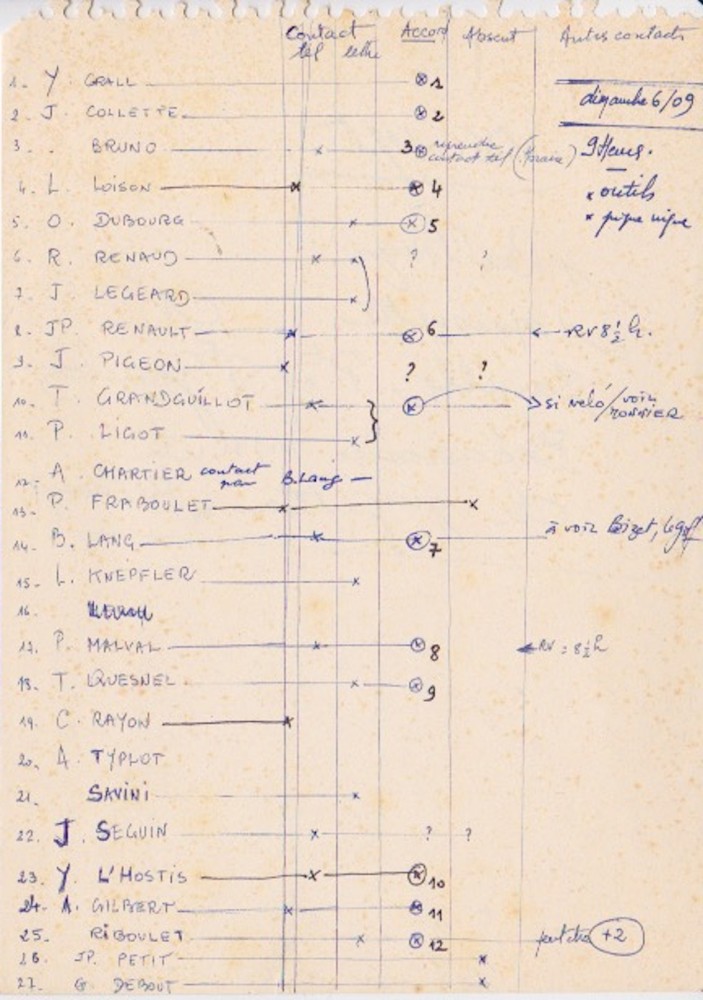 Contact Accord Absent Autres contacts
tel lettre
1. Y. GRALL ⊗ 1
dimanche 6/09
2. J. COLLETTE. ⊗ 2
3. . BRUNO x 3 ⊗ reprendre contact tel (horaire) 9 Heures.
4. L. LOISON x ⊗ 4 x outils
5. O. DUBOURG x ⊗ 5 x pique nique
6. R. RENAUD x x ? ?
7. J. LEGEARD x
8. JP. RENAULT x ⊗ 6 ← RV 8 1/2 h.
9. J. PIGEON x ? ?
10. T. GRANDGUILLOT x ⊗ → si vélo/voir MONNIER
11. P. LIGOT x
12. A CHARTIER contact par B. Lang —
13. P. FRABOULET x x
14. B. LANG x ⊗ 7 à voir Bizet,
15. L. KNEPFLER x
16.
17. P. MALVAL x ⊗ 8 ← RV : 8 1/2 h
18. T. QUESNEL x ⊗ 9
19. C. RAYON x
20. A. TYPLOT
21. SAVINI x
22. J. SEGUIN x ? ?
23. Y. L'HOSTIS x ⊗ 10
24. A. GILBERT x ⊗ 11
25. RIBOULET x ⊗ 12 +2
26. JP. PETIT x
27. G. DEBOUT x